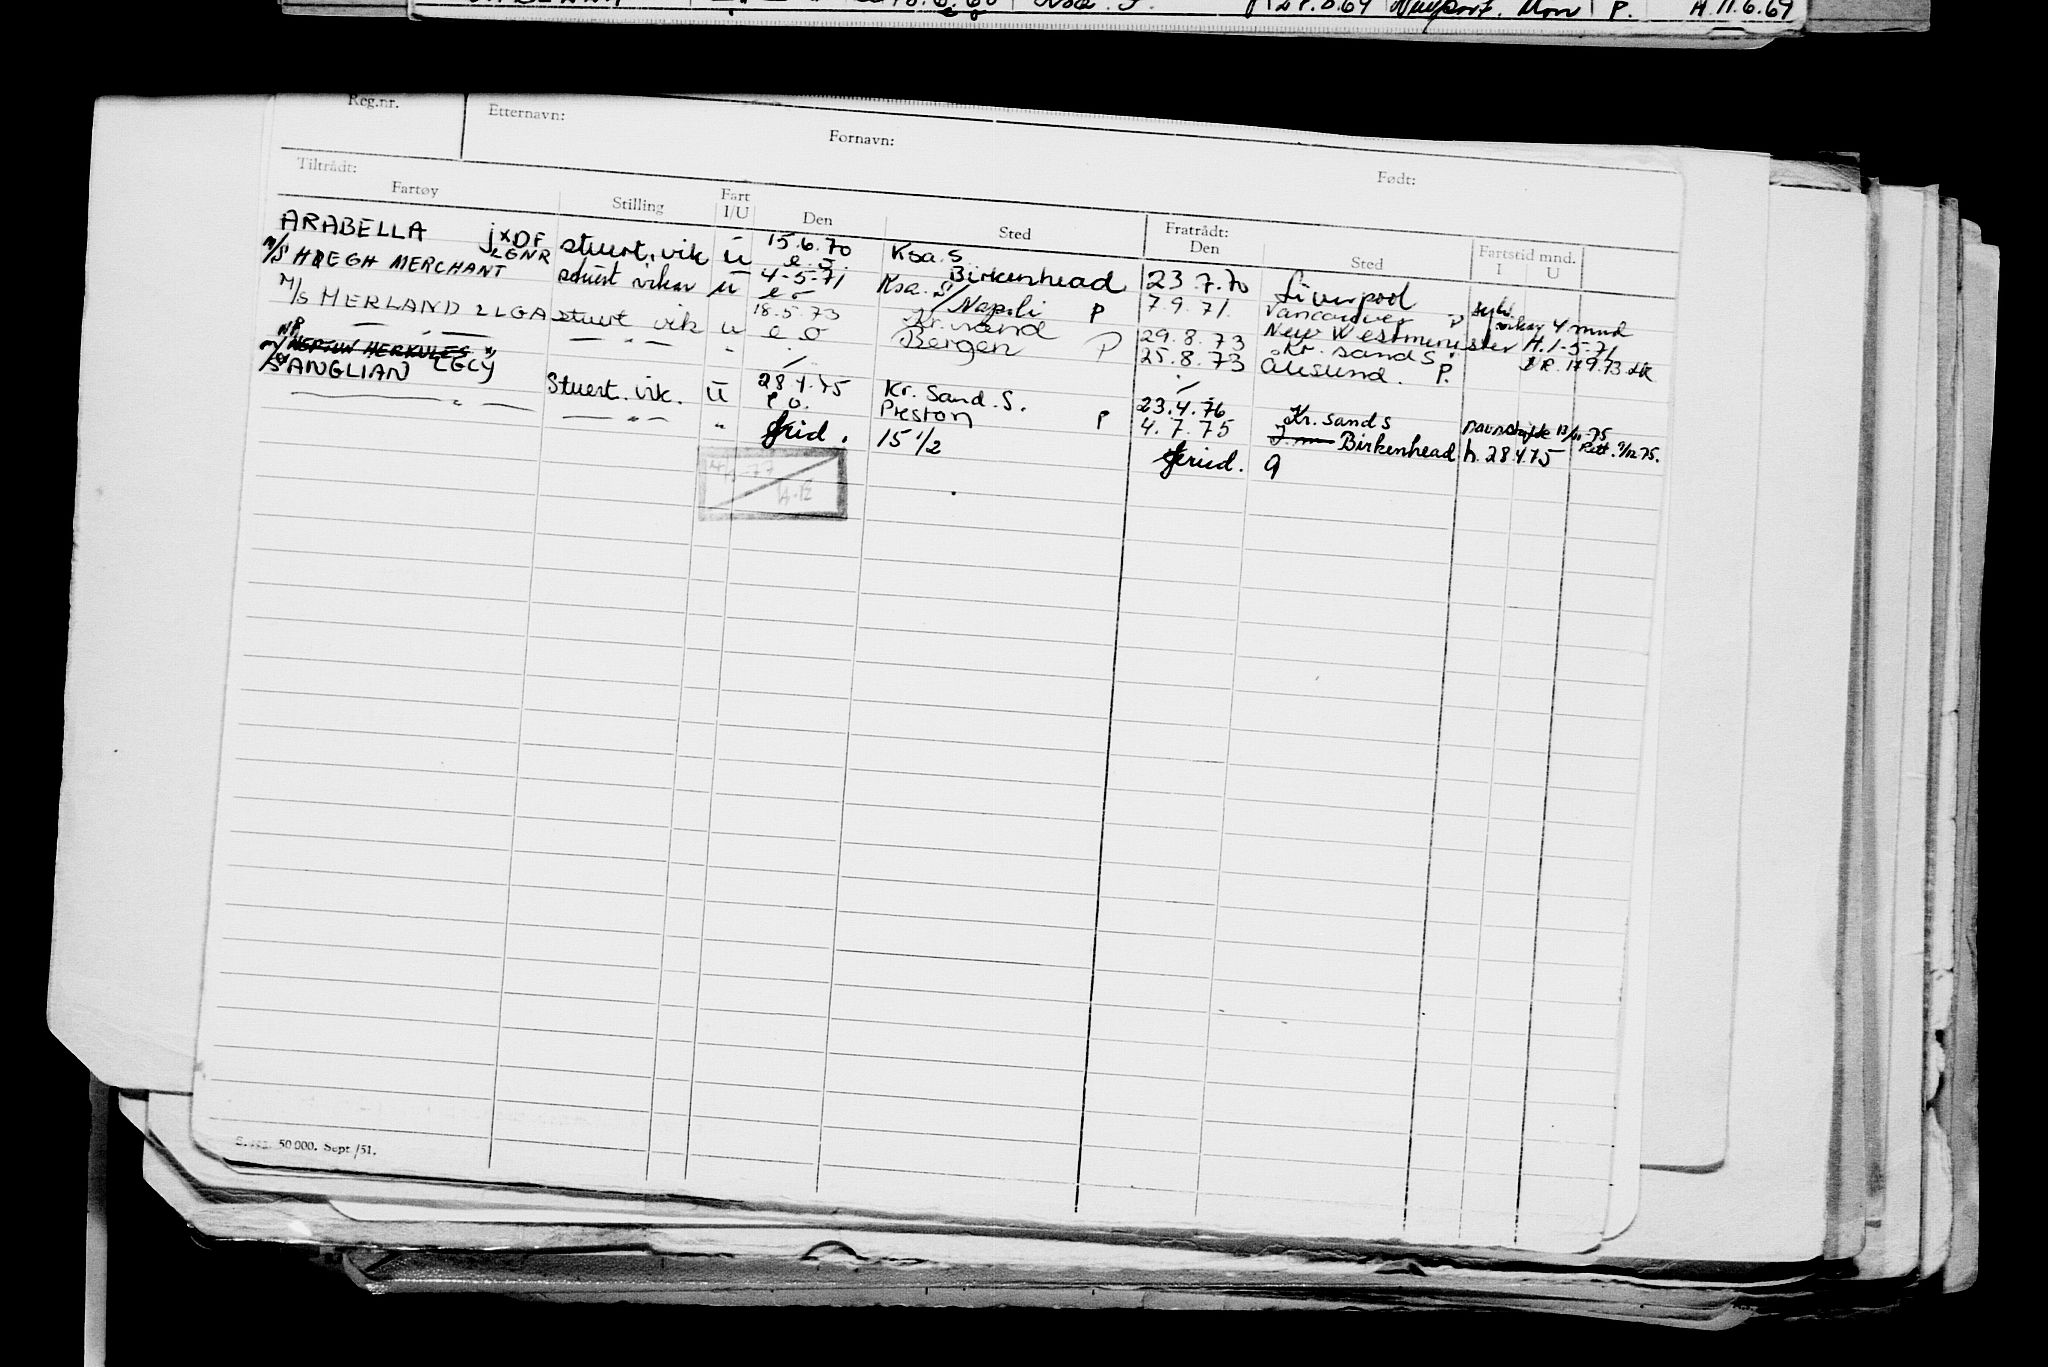 28.8.69 Newport. Mon P. H.11.6.69
Reg.nr. Etternavn: Fornavn: Født:
Tiltrådt: Fratrådt:
Fartøy Stilling Fart I/U Den Sted Den Sted Fartstid mnd. I U
ARABELLA JXDF stuert, vik u 15.6.70 Ksa. S
e.o. Birkenhead 23.7.70 Liverpool
M/S HØEGH MERCHANT LGNR stuert vikar u 4-5-71 Ksa. S/Napoli P 7.9.71. Vancouver P vikar 4 mnd
M/S HERLAND LLGA stuert vik u 18.5.73 Kr.sand 29.8.73 New Westminister H.1-5-71
— " — — " — " e o Bergen P 25.8.73 Kr. sand S.
Ålesund. P. 17.9.73
NEPTUN HERKULES
M/S ANGLIAN LGCY Stuert. vik. u 28.4.75 Kr. Sand. S. 23.4.76 Kr. sand S
— " — — " — " e o. Preston P 4.7.75 Birkenhead h. 28.4.75 Rett. 9/12.75.
frid. 15 1/2 friud. 9
50 000. Sept /51.